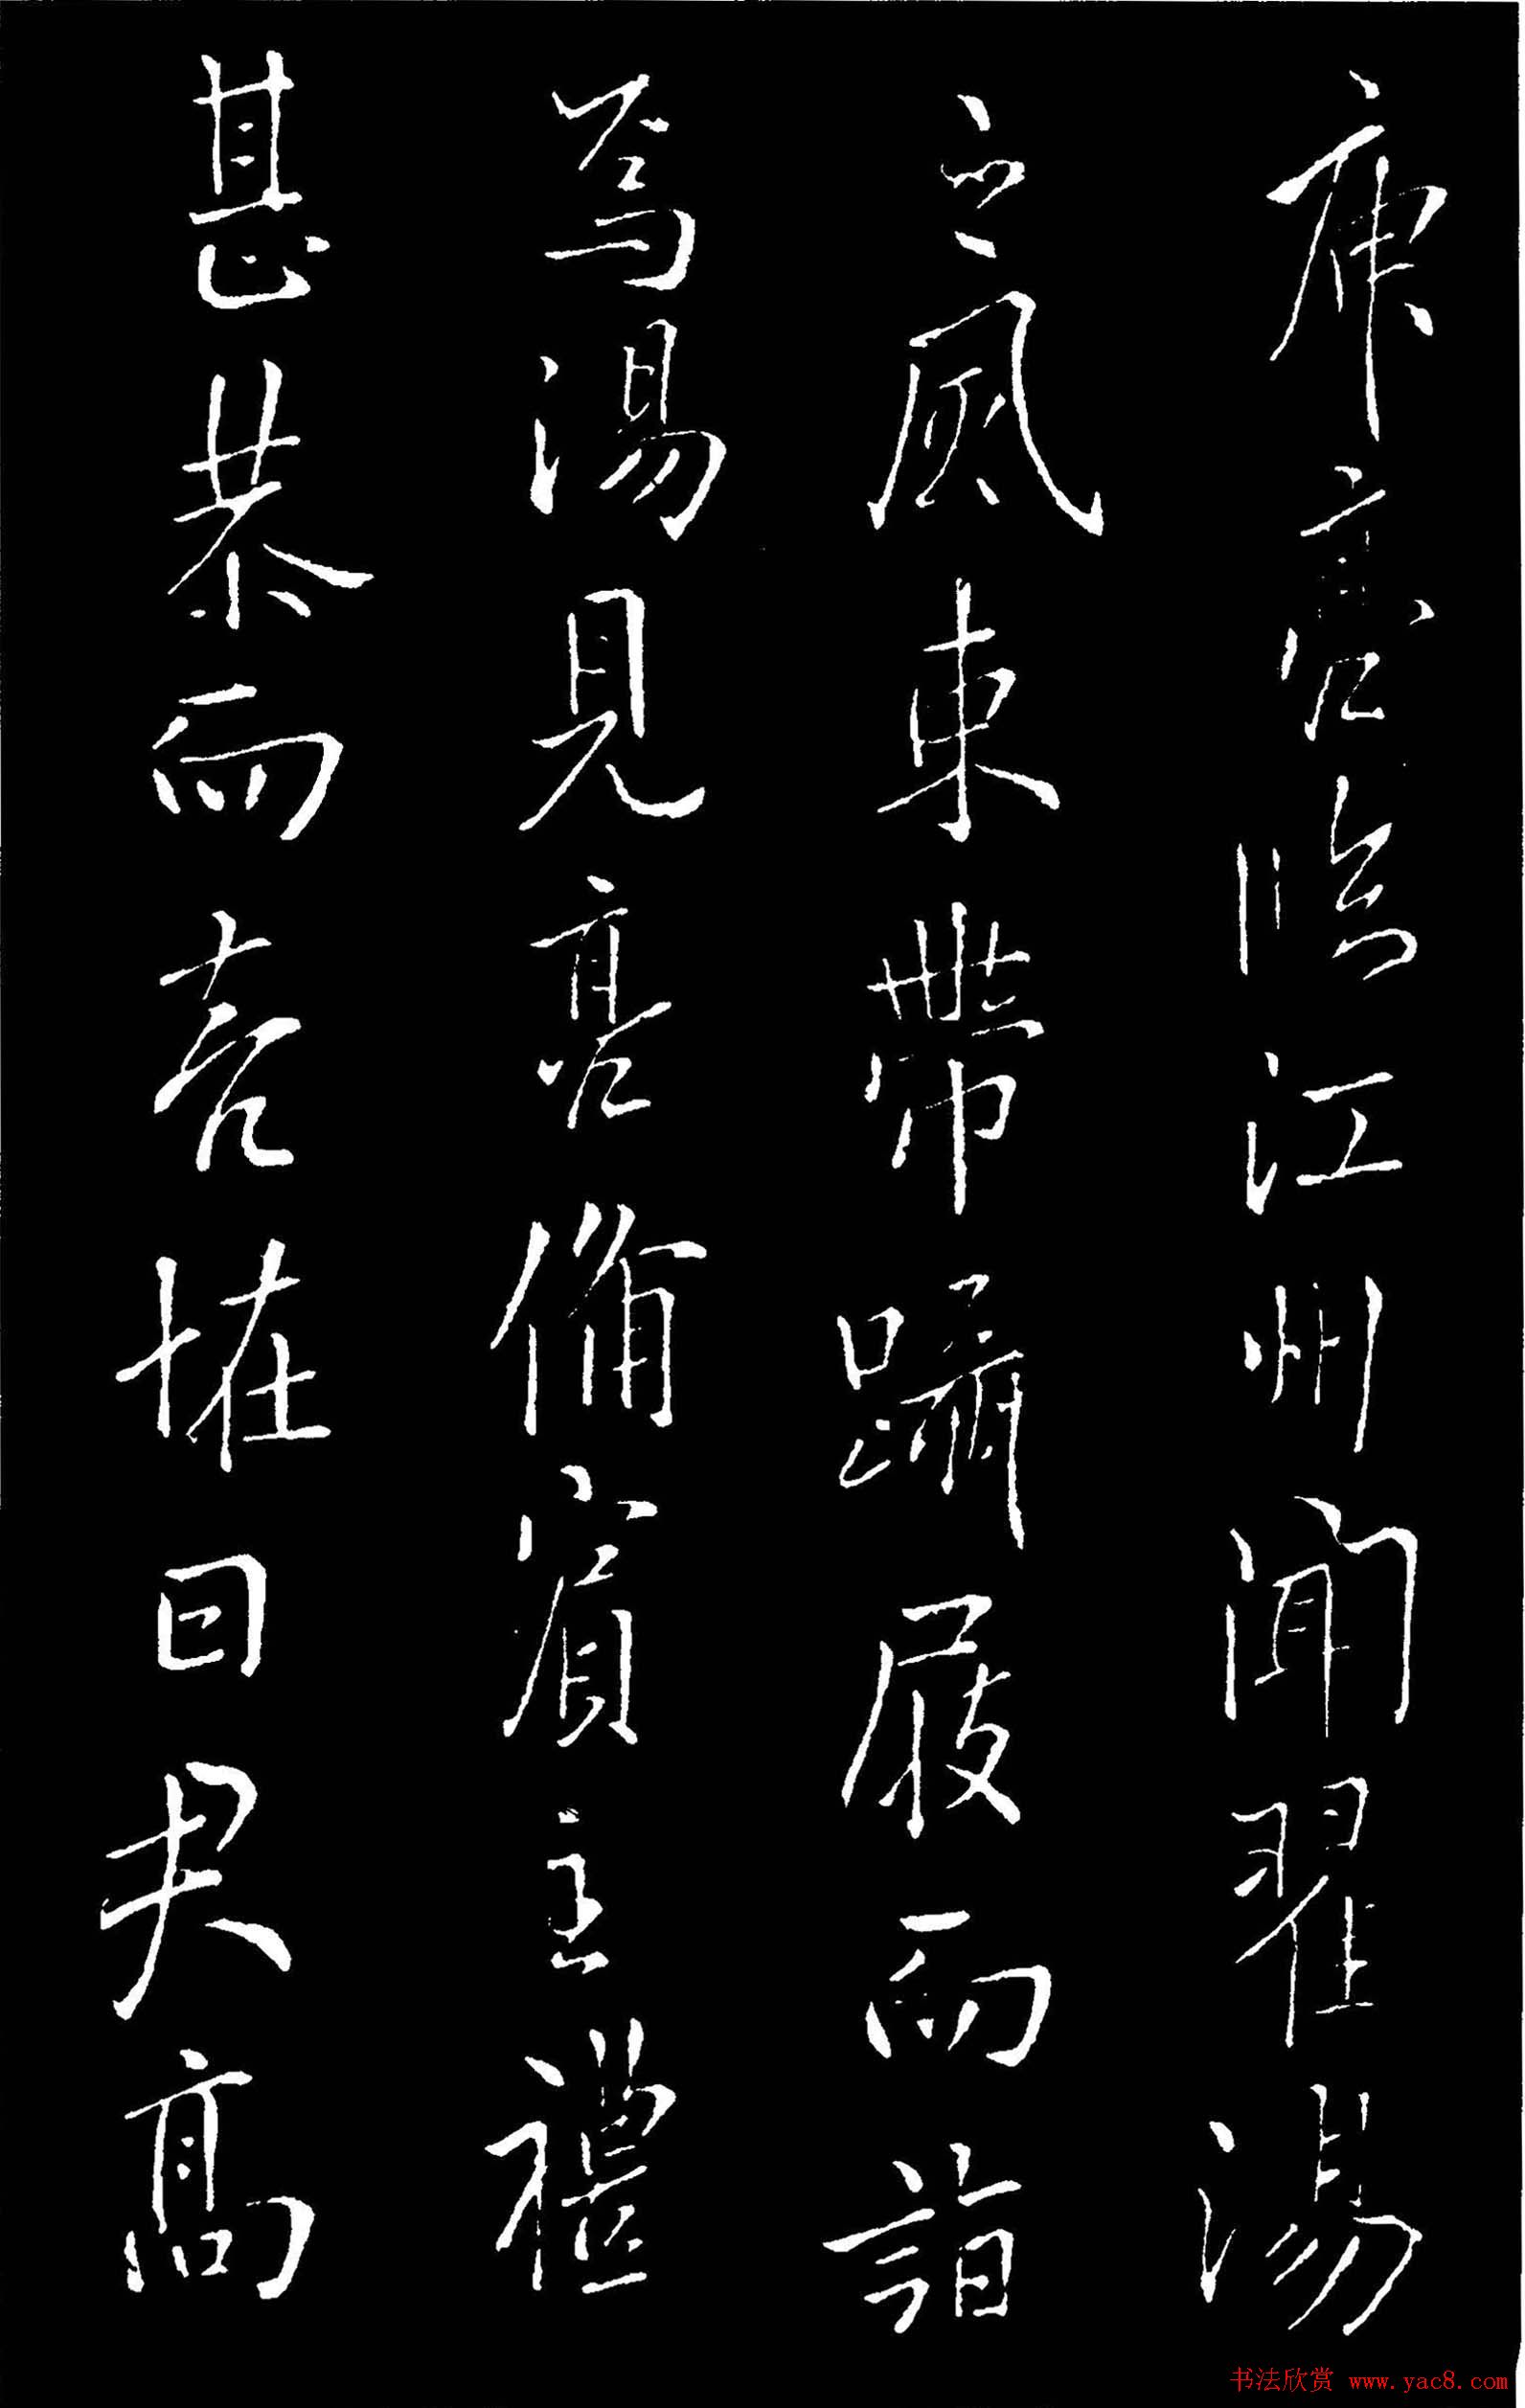 庾亮臨江州聞翟湯
之風束帶躡屐而詣
焉湯見亮備賓主禮
甚恭而亮怪曰君高
书法欣赏 www.yac8.com